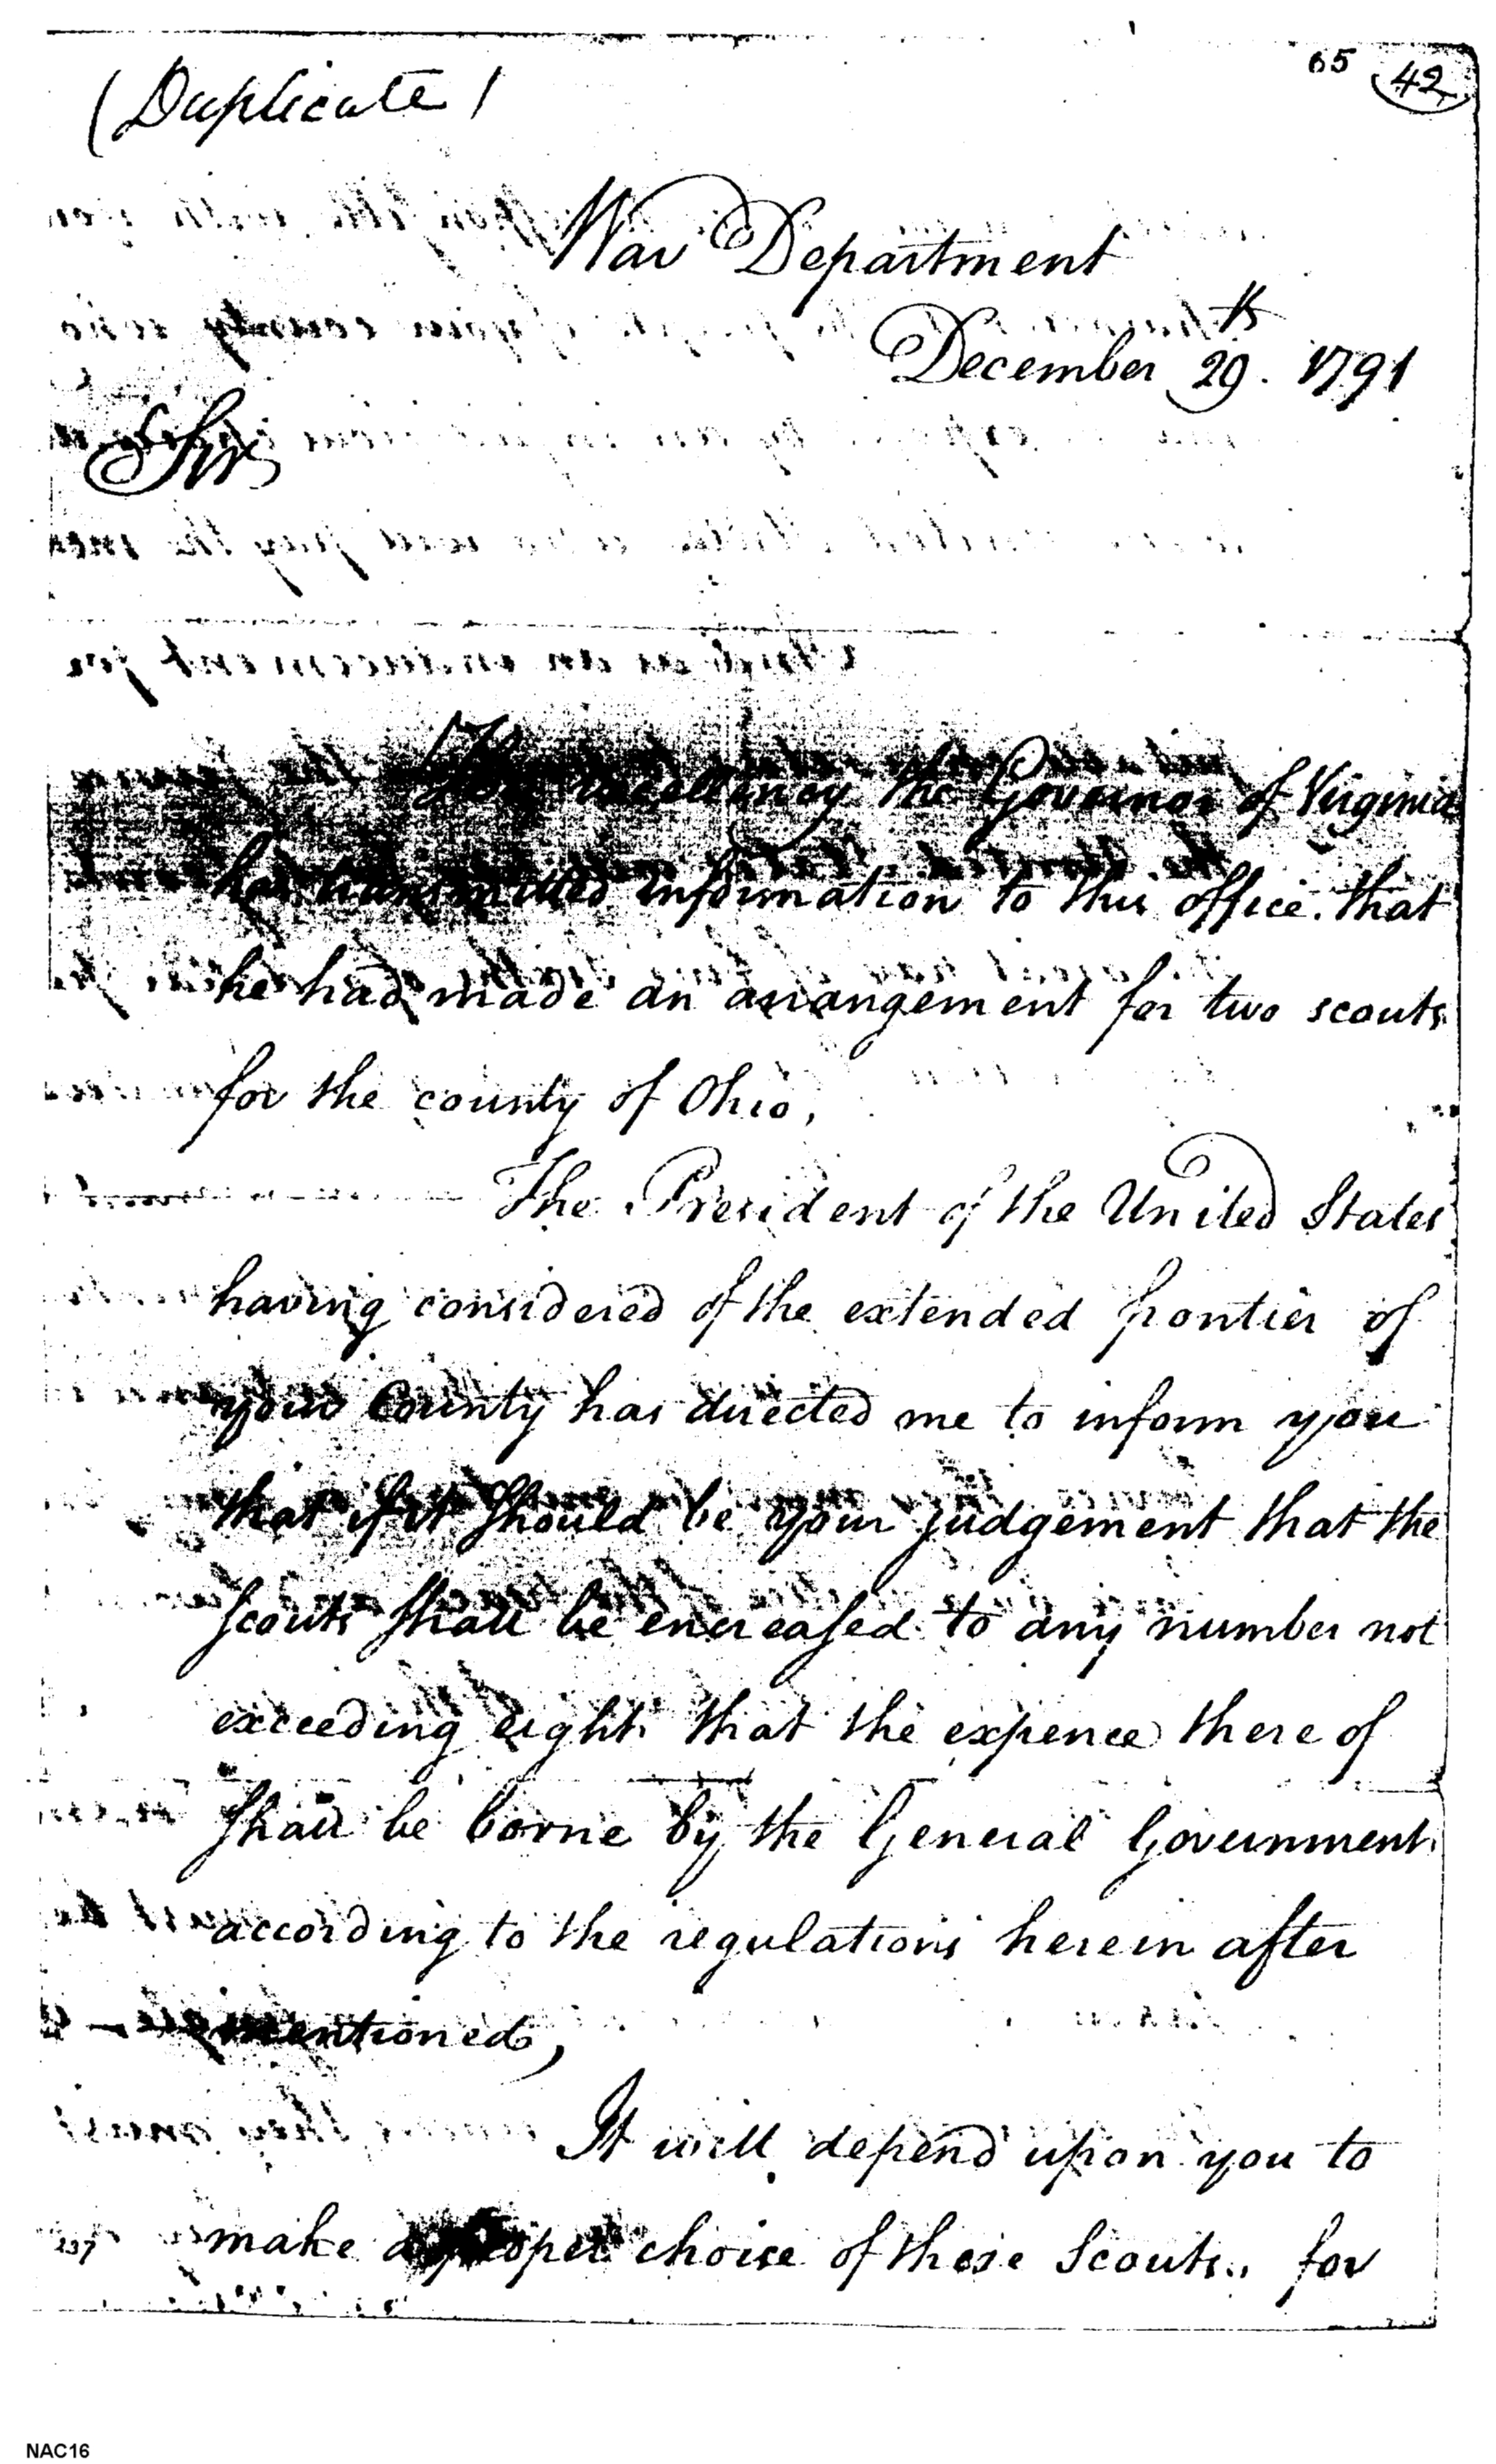 65 42
(Duplicate)
War Department
December 29th. 1791
Sir
His Excellency the Governor of Virginia
has transmitted information to this office. that
he had made an arrangement for two scouts
for the county of Ohio.
The President of the United States
having considered of the extended frontier of
your County has directed me to inform you
that if it should be your judgement that the
scouts shall be encreased to any number not
exceeding eight that the expence there of
shall be borne by the General Government
according to the regulations herein after
mentioned,
It will depend upon you to
make a proper choice of these Scouts., for
237
NAC16